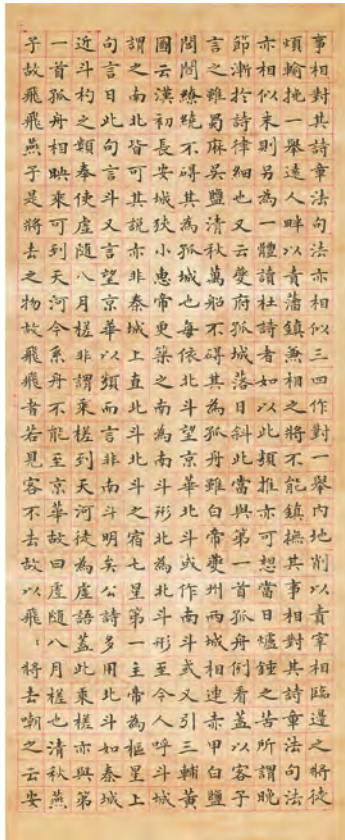 事相對其詩章法句法亦相似三四作對一舉內地削以責宰相臨邊之將徒
煩輸挽一舉遠人畔以責藩鎮兼相之將不能鎮撫其事相對其詩章法句法
亦相似末則另為一體讀杜詩者如以此類推亦可想當日爐錘之苦所謂晚
節漸於詩律細也又云夔府孤城落日斜此當與第一首孤舟例看蓋以客子
言之雖蜀麻吳鹽清秋萬船不碍其為孤舟雖白帝夔州兩城相連赤甲白鹽
閭閻繚繞不碍其為孤城也每依北斗望京華北斗或作南斗或又引三輔黃
圖云漢初長安城狹小惠帝更築之南為南斗形北為北斗形至今人呼斗城
謂之南北皆可其說亦非秦城上直北斗北斗之宿七星第一主帝為樞星上
句言日此句言斗又言望京華以類而言非南斗明矣公詩多用北斗如秦城
近斗杓之類奉使虛隨八月槎非謂乘槎到天河徒為虛語蓋此乘槎亦與第
一首孤舟相映乘可到天河今系舟不能至京華故曰虛隨八月槎也清秋燕
子故飛飛燕子是將去之物故飛飛者若見客不去故以飛：將去嘲之云安